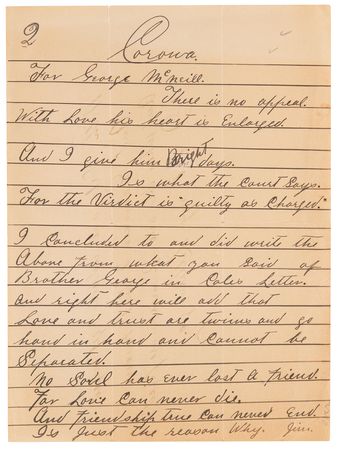 2
Corowa.
For George McNeill.
There is no appeal.
With Love his heart is Enlarged
And I give him Bright days.
Is what the Court Says.
For the Virdict is "guilty as Charged."
I Concluded to and did write the
Above from what you Said of
Brother George in Coles Letter.
And right here will add that
Love and trust are twins and go
hand in hand and Cannot be
Separated.
No Soul has Ever lost a friend.
For Love Can never die.
And friendship true Can never End.
Is Just the reason Why. Jim.